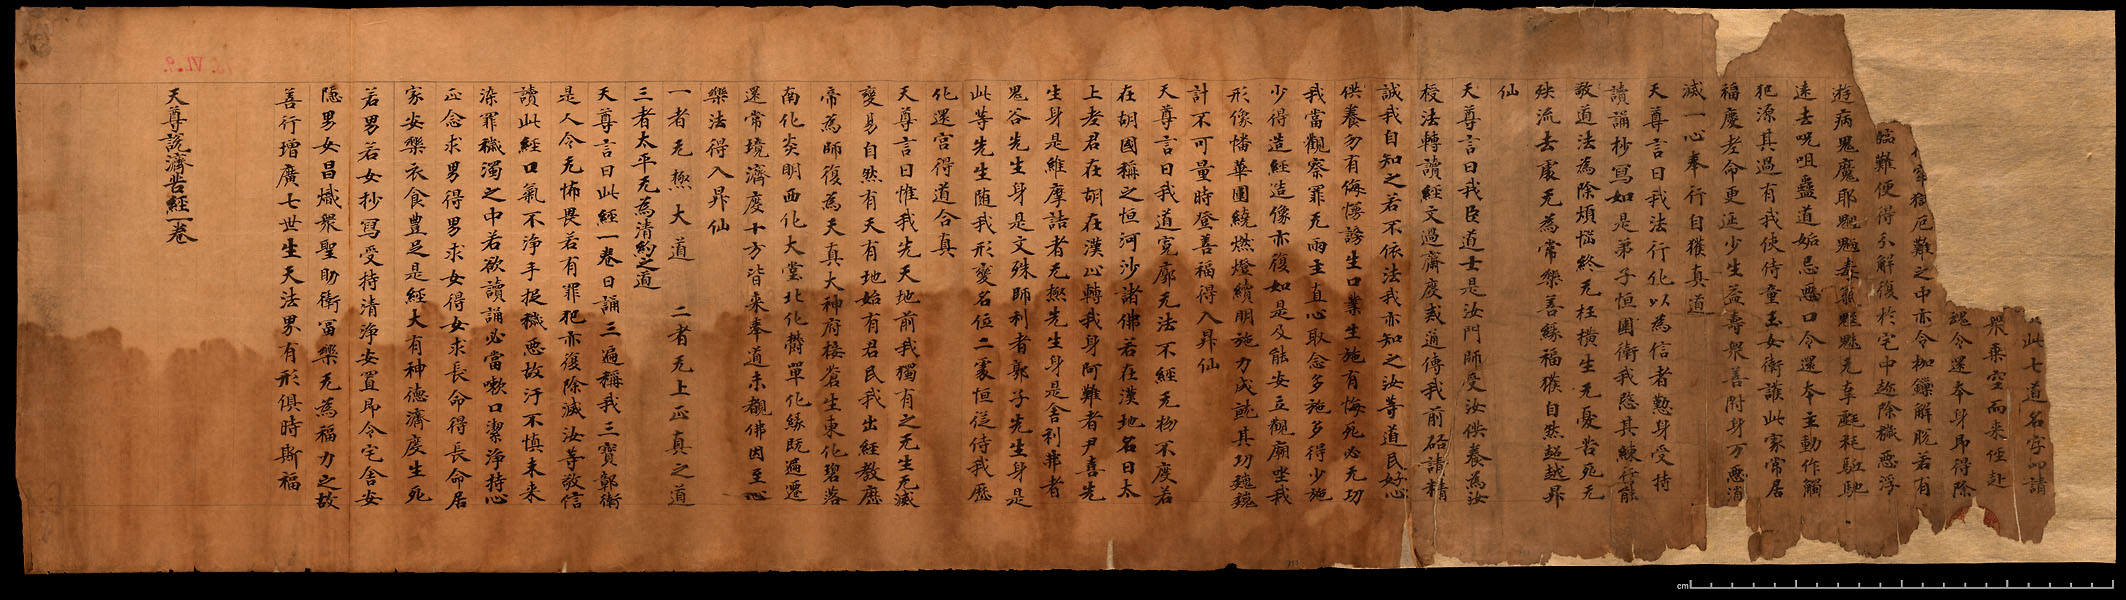 此七道名字 請
眾乘空而来侄赴
魂令還本身即得除
牢獄厄難之中亦令枷鏁解脫若有
臨難便得 解復於宅中 除穢惡浮
遊病鬼魔耶魍魎毒 魑魅无辜 耗 馳
遠去呪咀蠱道妬忌惡口令還本主動作觸
犯源其過有我使侍童玉女衛護此家常居
福慶老命更延少生益壽眾善附身万惡消
滅一心奉行自獲真道
天尊言曰我法行化以為信者懃身受持
讀誦抄寫如是弟子恒圍衛我愍其練行能
敬道法為除煩惱終无枉橫生无憂苦死无
殃流去處无為常樂善緣福獲自然超越昇
仙
天尊言曰我臣道士是汝門師受汝供養為汝
校法轉讀經文過齋度戒通傳我前啟請精
誠我自知之若不依法我亦知之汝等道民好心
供養勿有侮慢謗生口業生施有悔死必无功
我當觀察罪无雨主直心取念多施多得少施
少得造經造像亦復如是及能安立觀廟坐我
形像幡華圍繞燃燈續明施力成就其功巍巍
計不可量時登善福得入昇仙
天尊言曰我道寬廓无法不經无物不度若
在胡國稱之恒河沙諸佛若在漢地名曰太
上老君在胡在漢心轉我身阿難者尹喜先
生身是維摩詰者无極先生身是舍利弗者
鬼谷先生身是文殊師利者郭子先生身是
此等先生随我形變名位二處恒從侍我歷
化還宫得道合真
天尊言曰惟我先天地前我獨有之无生无滅
變易自然有天有地始有君民我出經教歷
帝為師復為天真大神府接蒼生東化碧落
南化炎明西化大堂北化欝單化緣既遍遷
還常境濟度十方皆来奉道未覩佛因至心
樂法得入昇仙
一者无極大道 二者无上正真之道
三者太平无為清約之道
天尊言曰此經一卷日誦三遍稱我三寶鄣衛
是人令无怖畏若有罪犯亦復除滅汝等敬信
讀此經口氣不淨手捉穢惡故汙不慎未来
染罪穢濁之中若欲讀誦必當嗽口潔淨持心
正念求男得男求女得女求長命得長命居
家安樂衣食豊足是經大有神德濟度生死
若男若女抄寫受持清淨安置即令宅舍安
隱男女昌熾衆聖助衛冨樂无為福力之故
善行增廣七世生天法界有形俱時斯福
天尊說濟苦經一卷